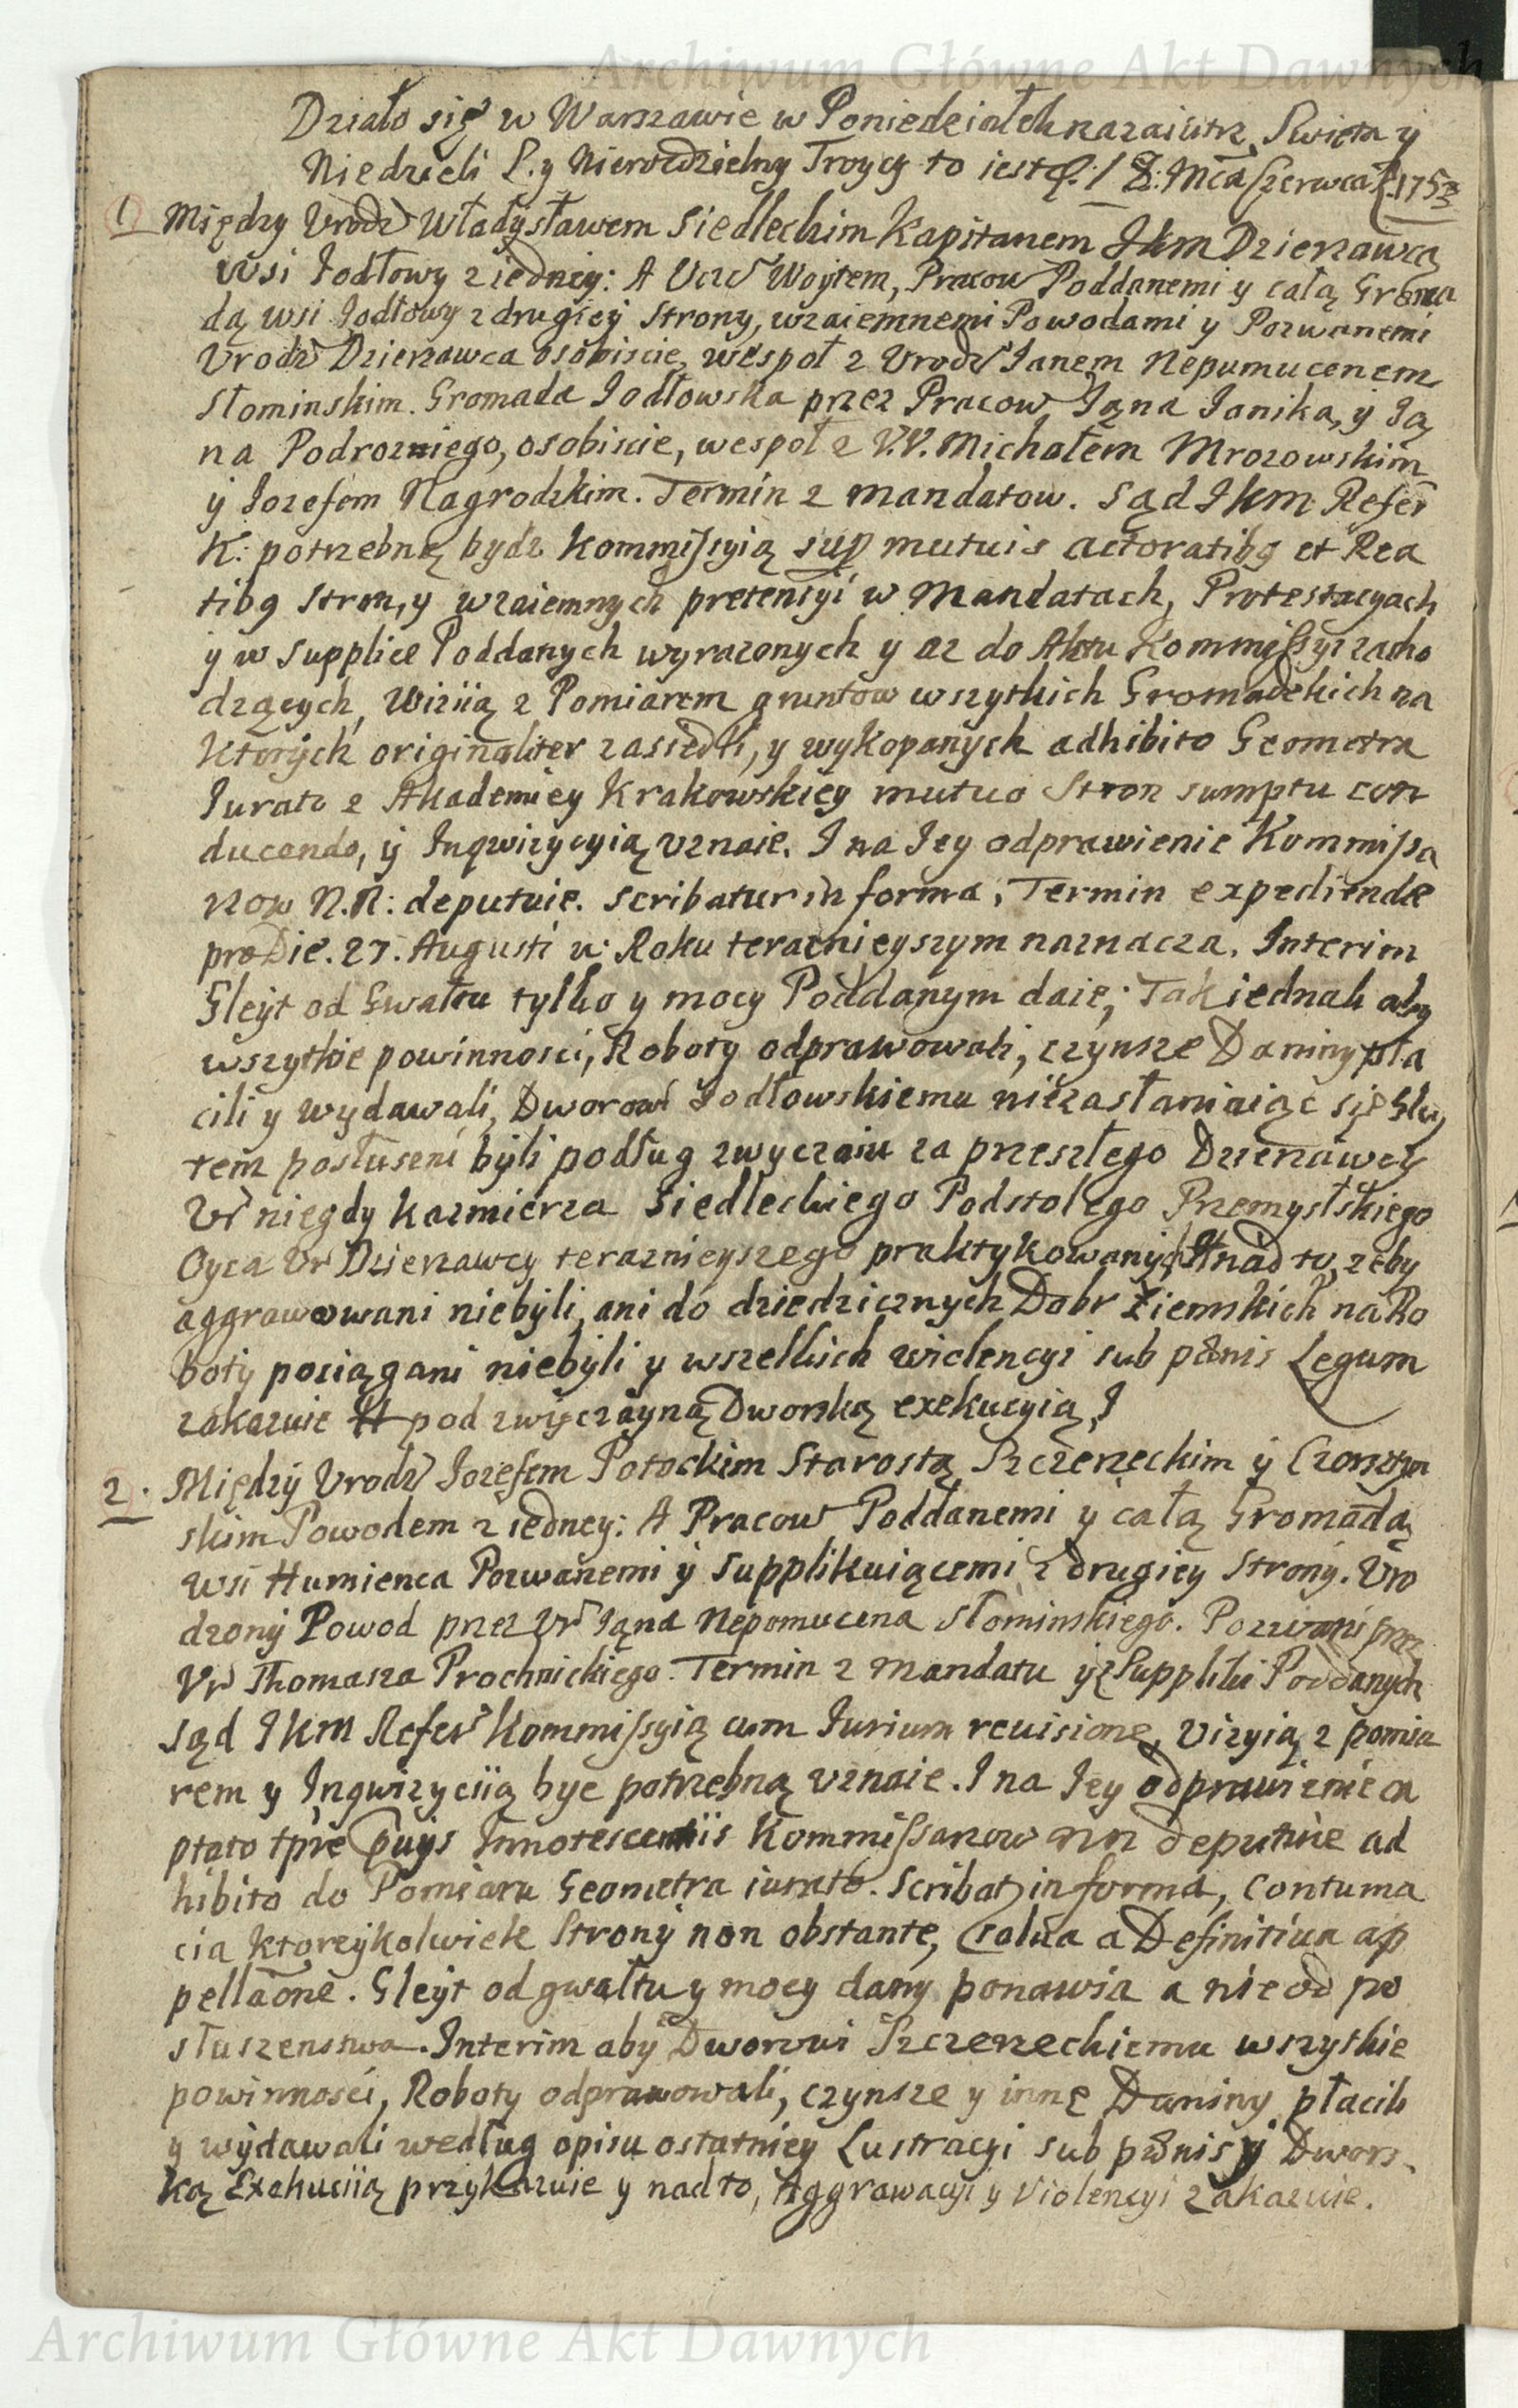 Archiwum Główne Akt Dawnych
Działo się w Warszawie w Poniedziałek nazaiutrz Swięta y
Niedzieli S. y Nierozdzielny Troycy to iest d. 18. Mca Czerwca R. 1753
1 Między Urodz Władysławem Siedleckim Kapitanem JKm Dzierzawcą
wsi Jodłowy z iedney: A Ucz Woytem, Pracow Poddanemi y całą Groma
dą wsi Jodłowy z drugiey Strony, wzaiemnemi Powodami y Pozwanemi
Urodz Dzierzawca osobiscie, wespoł z Urodz Janem Nepumucenem
Słominskim. Gromada Jodłowska przez Pracow Jąna Janika, y Ją
na Podrozniego, osobiscie, wespoł z U.U. Michałem Mrozowskim
y Jozefem Nagrodzkim. Termin z mandatow. Sąd JKm Refer
K: potrzebną bydz Kommissyią sup mutuis actoratibg et Rea
tibg Stron, y wzaiemnych pretensyi w Mandatach, Protestacyach
y w Supplice Poddanych wyrazonych y az do Aktu Kommissyi zacho
dzących, Wiziią z Pomiarem gruntow wszytkich Gromadzkich na
ktorych originaliter zassiedli, y wykopanych adhibito Geometra
Jurato z Akademiey Krakowskiey mutuo Stron sumptu con
ducendo, y Inqwizycyią uznaie. I na Jey odprawienie Kommissa
rzow N.N: deputuie. Scribatur in forma, Termin expediendae
pro Die. 27. Augusti w Roku teraznieyszym naznacza. Interim
Gleyt od Gwałtu tylko y mocy Poddanym daie; Tak iednak aby
wszytkie powinnosci, Roboty odprawowali, czynsze Daniny pła
cili y wydawali, Dworowi Jodłowskiemu niezasłaniaiąc się Gley
tem posłuseni byli podług zwyczaiu za przeszłego Dzierzawcy
Ur niegdy Kazmierza Siedleckiego Podstolego Przemyslskiego
Oyca Ur Dzierzawcy teraznieyszego praktykowanych A nad to, zeby
aggrawowani niebyli, ani do dziedzicznych Dobr Ziemskich na Ro
boty pociągani niebyli y wszelkich wiolencyi sub paenis Legum
zakazuie pod zwyczayną Dworską exekucyią
2. Między Urodz Jozefem Potockim Starostą Szczerzeckim y Czorsztyn
skim Powodem z iedney: A Pracow Poddanemi y całą Gromadą
wsi Humienca Pozwanemi y Supplikuiącemi z drugiey Strony. Uro
dzony Powod przez Ur Jąna Nepomucena Słominskiego. Pozwani przez
Ur Thomasza Prochnickiego. Termin z Mandatu y z Suppliki Poddanych
Sąd JKM Refer Kommissyią cum Jurium reuisione, Vizyią z pomia
rem y Inqwizyciią byc potrzebną uznaie. I na Jey odprawienie ca
ptato tpre puys Innotescentiis Kommissarzow NN deputuie ad
hibito do Pomiaru Geometra iurato. Scribat in forma, contuma
cia ktoreykolwiek Strony non obstante, salua a Definitiua ap
pellaone. Gleyt od gwałtu y mocy dany ponawia a nie od po
słuszenstwa. Interim aby Dworowi Szczerzeckiemu wszytkie
powinnosci, Roboty odprawowali, czynsze y inne Daniny płacili
y wydawali według opisu ostatniey Lustracyi sub paenis y Dwors
ką Exekuciią przykazuie y nad to, Aggrawacyi y Violencyi zakazuie.
Archiwum Główne Akt Dawnych